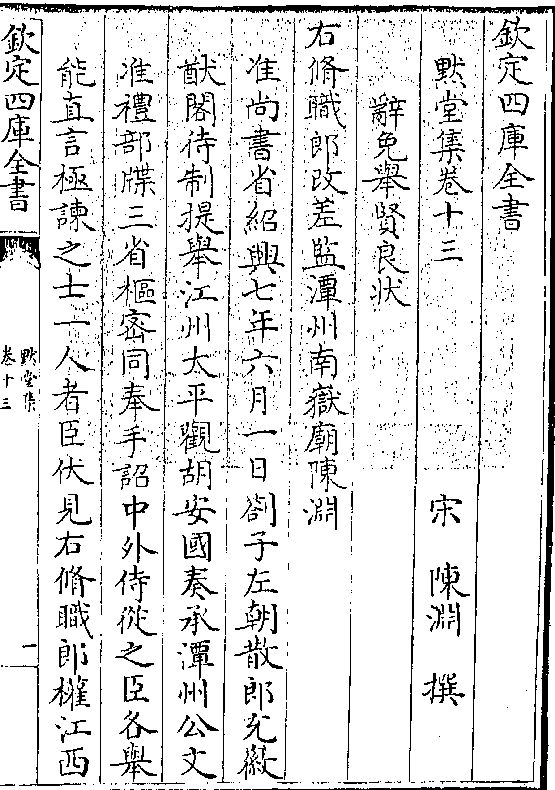 欽定四庫全書
黙堂集卷十三
宋　陳淵　撰
辭免舉賢良狀
右脩職郎改差監潭州南嶽廟陳淵
准尚書省紹興七年六月一日劄子左朝散郎充徽
猷閣待制提舉江州太平觀胡安國奏承潭州公文
准禮部牒三省樞密同奉手詔中外侍從之臣各舉
能直言極諫之士一人者臣伏見右脩職郎權江西
欽定四庫全書
黙堂集
卷十三
一